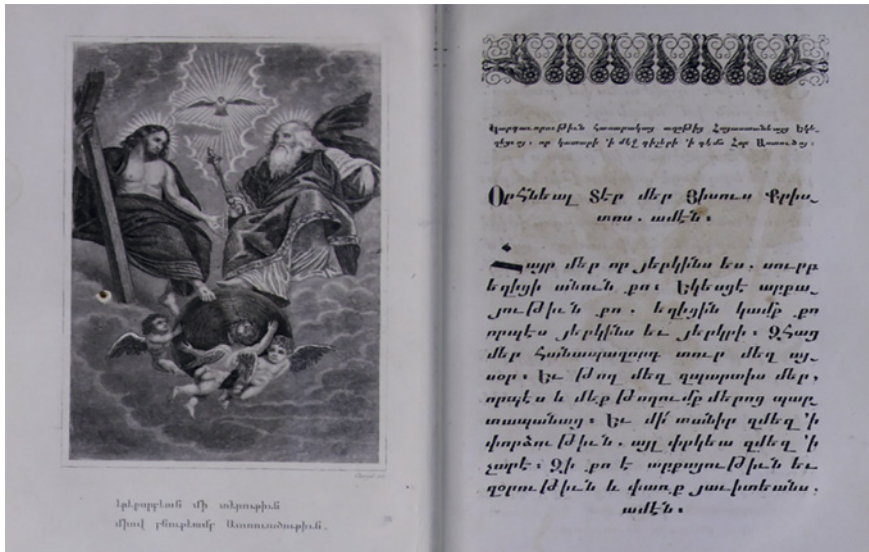 երեքարբէան մի տէրութիւն
միով բնութեամբ Աստուածութիւն.
Կարգաւորութիւն հասարակաց աղօթից Հայաստանեայց Եկե֊
ղեցւոյ. որ կատարի ՚ի մէջ գիշերի ՚ի դէմս Հօր Աստուծոյ։
Օրհնեալ Տէր մեր Յիսուս Քրիս֊
տոս. ամէն։
Հայր մեր որ յերկինս ես, սուրբ
եղիցի անուն քո։ Եկեսցէ արքա֊
յութիւն քո. եղիցին կամք քո
որպէս յերկինս եւ յերկրի։ Զհաց
մեր հանապազորդ տուր մեզ այ֊
սօր։ Եւ թող մեզ զպարտիս մեր,
որպէս և մեք թողումք մերոց պար֊
տապանաց։ Եւ մի՛ տանիր զմեզ ՚ի
փորձութիւն. այլ փրկեա զմեզ ՚ի
չարէ։ Զի քո է արքայութիւն եւ
զօրութիւն և փառք յաւիտեանս.
ամէն։